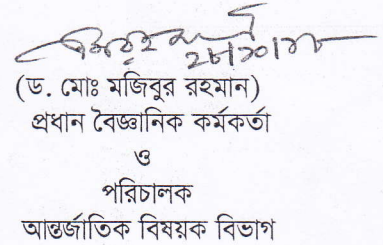 ২৮/১০/১৮
(ড. মোঃ মজিবুর রহমান)
প্রধান বৈজ্ঞানিক কর্মকর্তা
ও
পরিচালক
আন্তর্জাতিক বিষয়ক বিভাগ